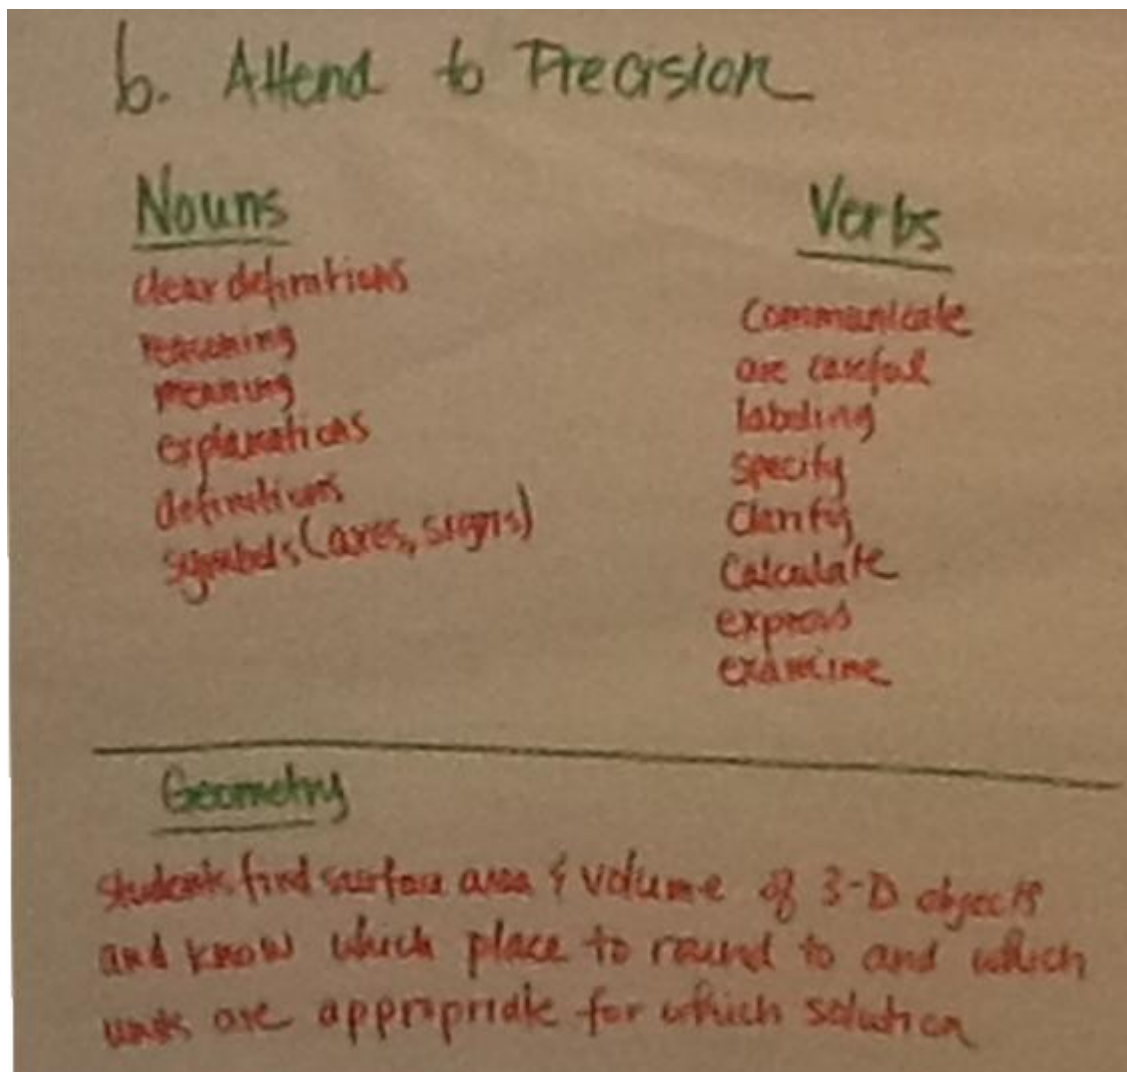 6. Attend to Precision
Nouns
clear definitions
reasoning
meaning
explanations
definitions
symbols (axes, signs)
Verbs
Communicate
are careful
labeling
specify
Clarify
Calculate
express
examine
Geometry
students find surface area & volume of 3-D objects
and know which place to round to and which
units are appropriate for which solution